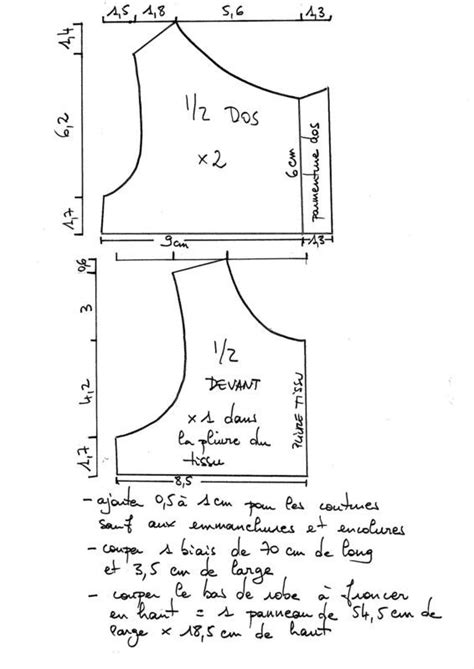 1,5 1,8 5,6 1,3
1,4
6,2
1,7
1/2 DOS
x2
6 cm
parmenture dos
9cm
1,3
0,6
3
4,2
1,7
1/2
DEVANT
x 1 dans
la pliure du
tissu
PLIURE TISSU
8,5
- ajouter 0,5 à 1 cm pour les coutures
sauf aux emmanchures et encolures
- couper 1 biais de 70 cm de long
et 3,5 cm de large
- couper le bas de robe à froncer
en haut = 1 panneau de 54,5 cm de
large x 18,5 cm de haut